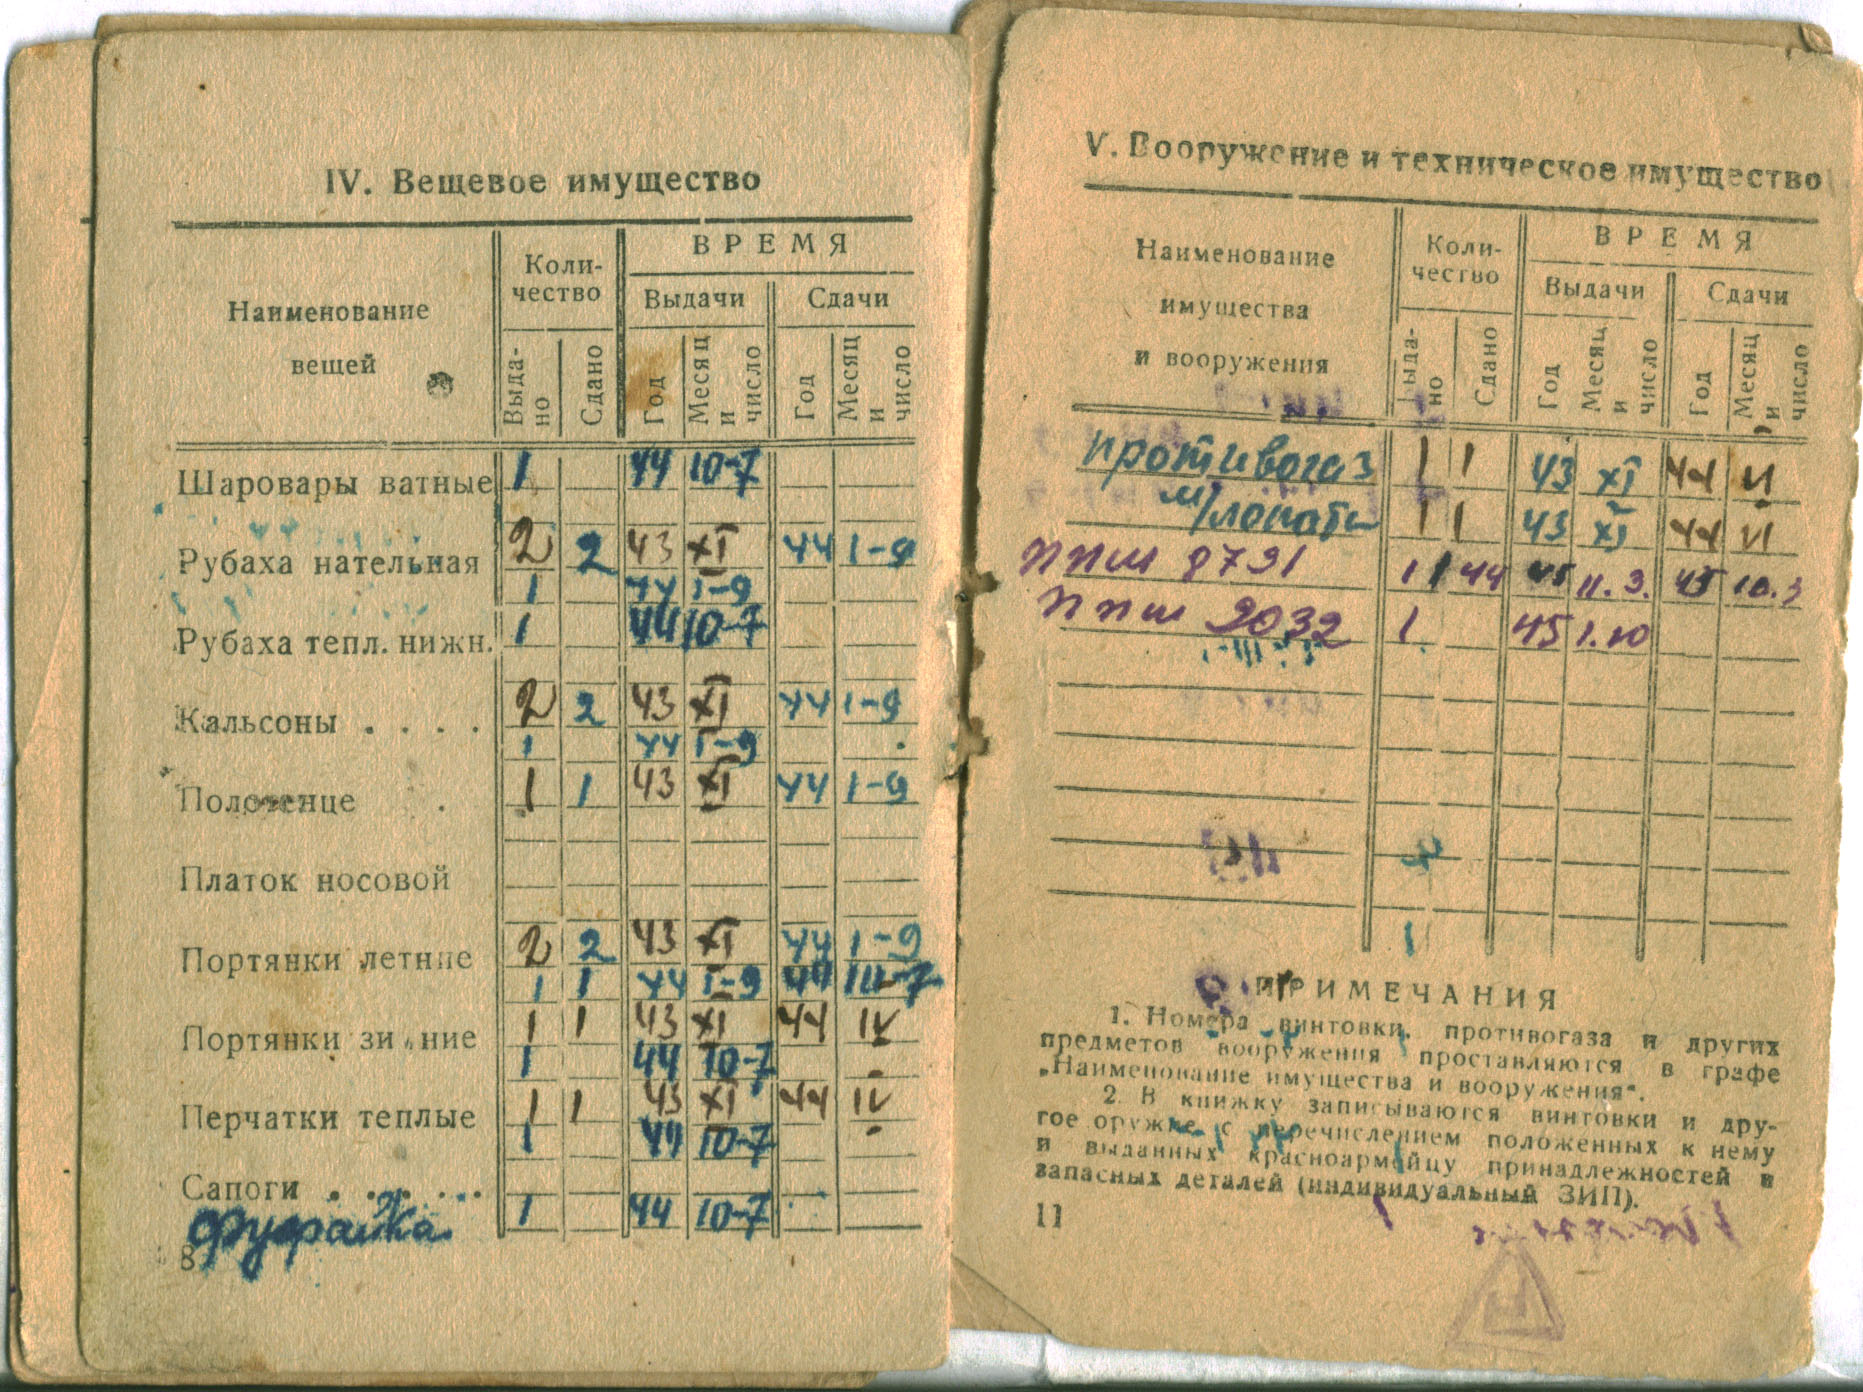 IV. Вещевое имущество
Наименование вещей
Коли-
чество
ВРЕМЯ
Выдачи
Сдачи
Выда-
но
Сдано
Год
Месяц
и
число
Год
Месяц
и
число
Шаровары ватные 1 44 10-7
Рубаха нательная 2 2 43 XI 44 1-9
1 44 1-9
Рубаха тепл. нижн. 1 44 10-7
Кальсоны . . . . 2 2 43 XI 44 1-9
1 44 1-9
Полотенце . 1 1 43 XI 44 1-9
Платок носовой
Портянки летние 2 2 43 XI 44 1-9
1 1 44 1-9 44 10-7
Портянки зимние 1 1 43 XI 44 IV
1 44 10-7
Перчатки теплые 1 1 43 XI 44 IV
1 44 10-7
Сапоги . . . . . .
фуфайка 1 44 10-7
8
V. Вооружение и техническое имущество
Наименование
имущества
и вооружения
Коли-
чество
ВРЕМЯ
Выдачи
Сдачи
Выда-
но
Сдано
Год
Месяц
и
число
Год
Месяц
и
число
противогаз 1 1 43 XI 44 VI
м/лопата 1 1 43 XI 44 VI
ппш 8791 1 1 44 45 11.3. 45 10.3
ппш 2032 1 45 1.10
ПРИМЕЧАНИЯ
1. Номера винтовки, противогаза и других
предметов вооружения проставляются в графе
„Наименование имущества и вооружения".
2. В книжку записываются винтовки и дру-
гое оружие с перечислением положенных к нему
и выданных красноармейцу принадлежностей и
запасных деталей (индивидуальный ЗИП).
11